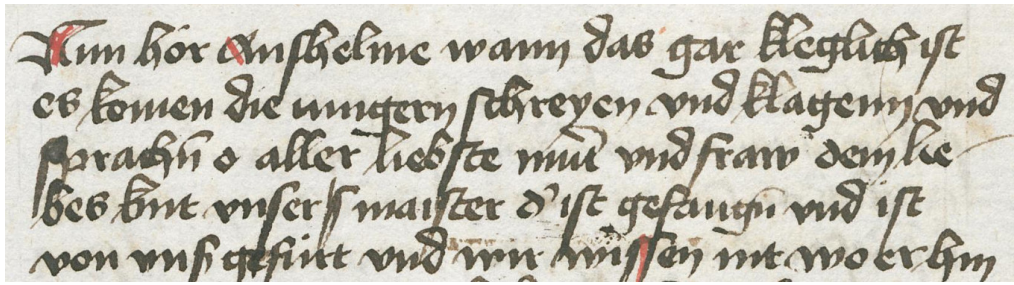 Nun hör Anshelme wann das gar kleglich ist
es komen die iungern schreyen vnd klagenn vnd
sprachn̄ o aller liebste mut̄ vnd fraw dein lie
bes kint vnser maister d' ist gefangn̄ vnd ist
von vnß gefürt vnd wir wissen nit wo er hin